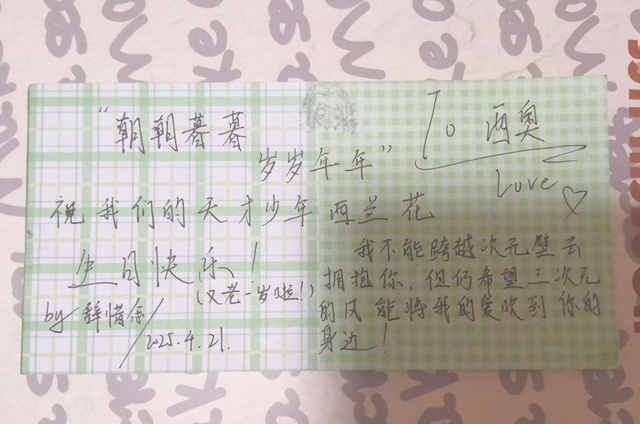 “朝朝暮暮
岁岁年年”
祝我们的天才少年西兰花
生日快乐！
(又老一岁啦!)
by 辞惜余
2025.4.21.
To 西奥
Love ♡
我不能跨越次元壁去
拥抱你，但仍希望三次元
的风能将我的爱吹到你的
身边！